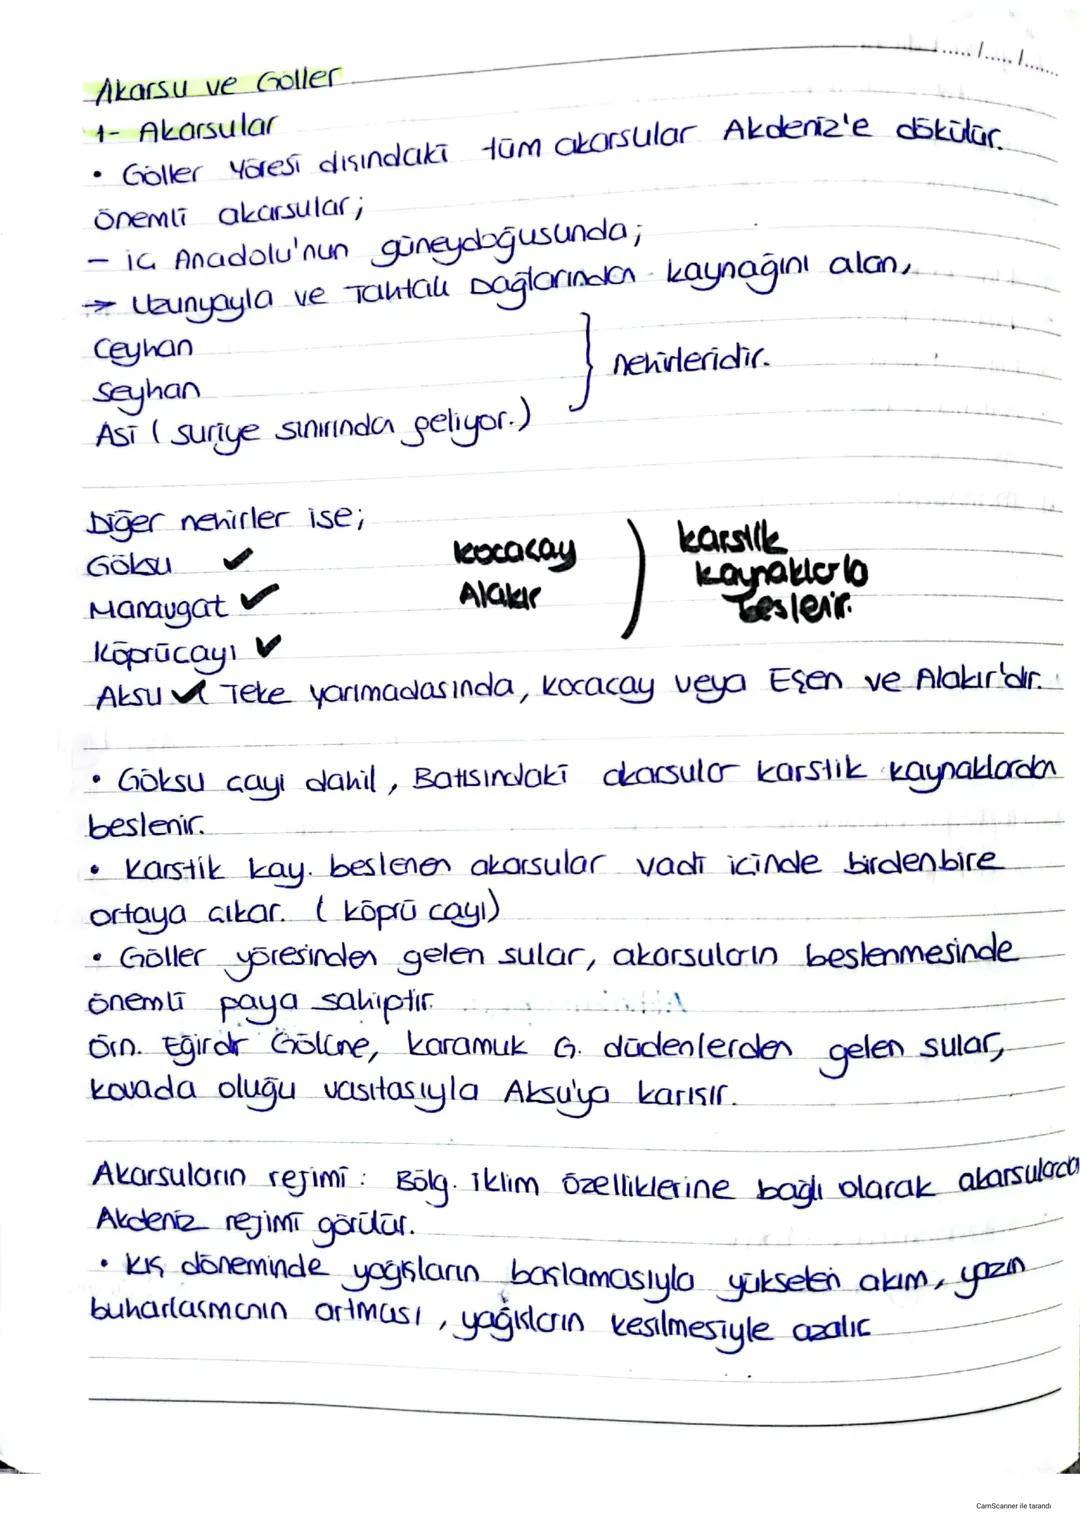 ...../...../.......
Akarsu ve Göller
1- Akarsular
• Göller Yöresi dışındaki tüm akarsular Akdeniz'e dökülür.
Önemli akarsular;
- iç Anadolu'nun güneydoğusunda;
→ Uzunyayla ve Tahtalı Dağlarından kaynağını alan,
Ceyhan
Seyhan
Asi ( suriye sınırında geliyor.)
} nehirleridir.
Diğer nehirler ise;
Göksu ✓
Manavgat ✓
Köprüçayı ✓
kocaçay
Alakır
) karstik
kaynaklarla
beslenir.
Aksu ✓ Teke yarımadasında, kocaçay veya Eşen ve Alakır'dır.
• Göksu çayı dahil, Batısındaki akarsular karstik kaynaklardan
beslenir.
• Karstik kay. beslenen akarsular vadi içinde birdenbire
ortaya çıkar. ( köprü çayı)
• Göller yöresinden gelen sular, akarsuların beslenmesinde
önemli paya sahiptir.
Örn. Eğirdir Gölüne, karamuk G. düdenlerden gelen sular,
kovada oluğu vasıtasıyla Aksu'ya karışır.
Akarsuların rejimi : Bölg. iklim özelliklerine bağlı olarak akarsularda
Akdeniz rejimi görülür.
• kış döneminde yağışların başlamasıyla yükselen akım, yazın
buharlaşmanın artması, yağışların kesilmesiyle azalır
CamScanner ile tarandı